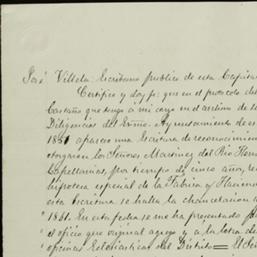 José Villela Escribano publico de esta Capital
Certifico y doy fe: que en el protocolo del
Castaño que tengo á mi cargo en el archivo de los
Diligencias del Exmo. Ayuntamiento de es
1851 aparece una Escritura de reconocimien
otorgaron los Señores Martinez del Rio Herm
Capellanias, por tiempo de cinco años, co
hipoteca especial de la Fabrica y Haciend
esta Escritura se halla la chancelacion s
1861. En esta fecha se me ha presentado p
el oficio que original agrego y a la letra di
oficinas Eclesiasticas del Distrito = El Se